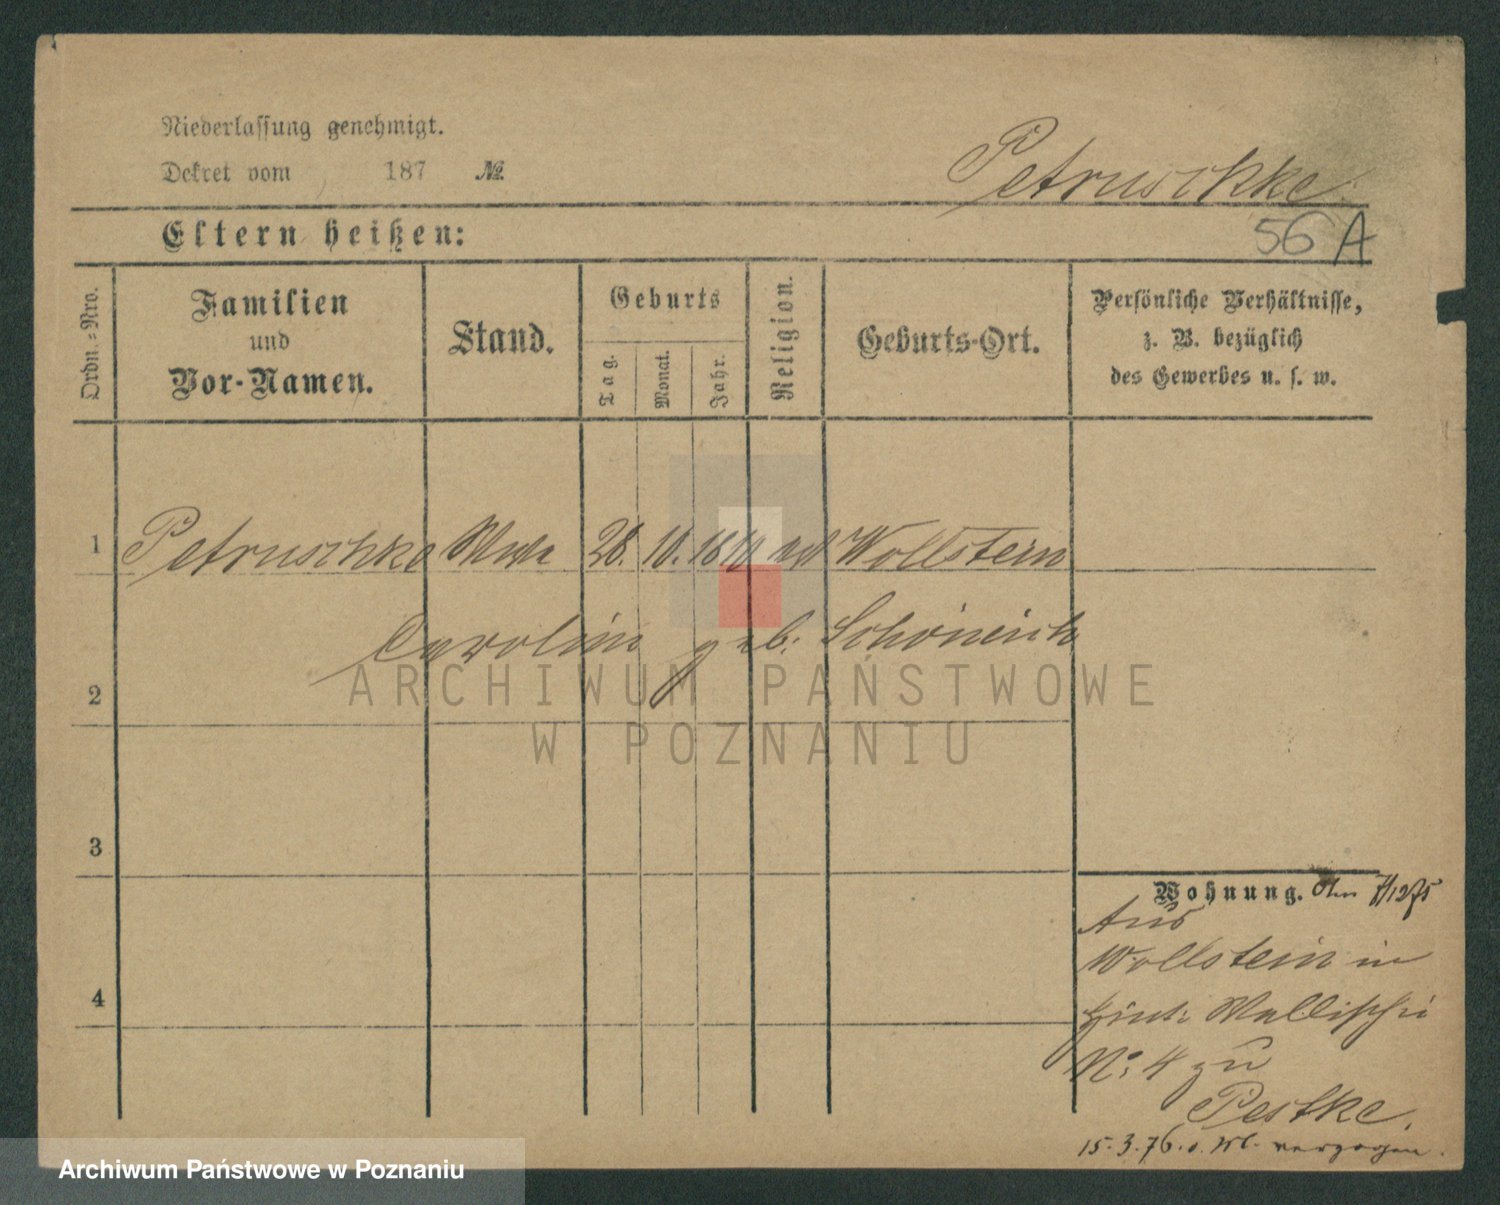 Niederlassung genehmigt.
Dekret vom 187 №.
Petruschke.
56 A
Eltern heißen:
Ordn.-Nro.
Familien
und
Vor-Namen.
Stand.
Geburts
Tag.
Monat.
Jahr.
Religion.
Geburts-Ort.
Persönliche Verhältnisse,
z. B. bezüglich
des Gewerbes u. s. w.
1 Petruschke 28. 10. Wollstein
Carolin geb. Schönich
2
3
4
Wohnung. 7/12 75
Aus
Wollstein in
Hint: Wallischei
No: 4 zu
Pestke.
15. 3. 76. verzogen.
ARCHIWUM PAŃSTWOWE
W POZNANIU
Archiwum Państwowe w Poznaniu